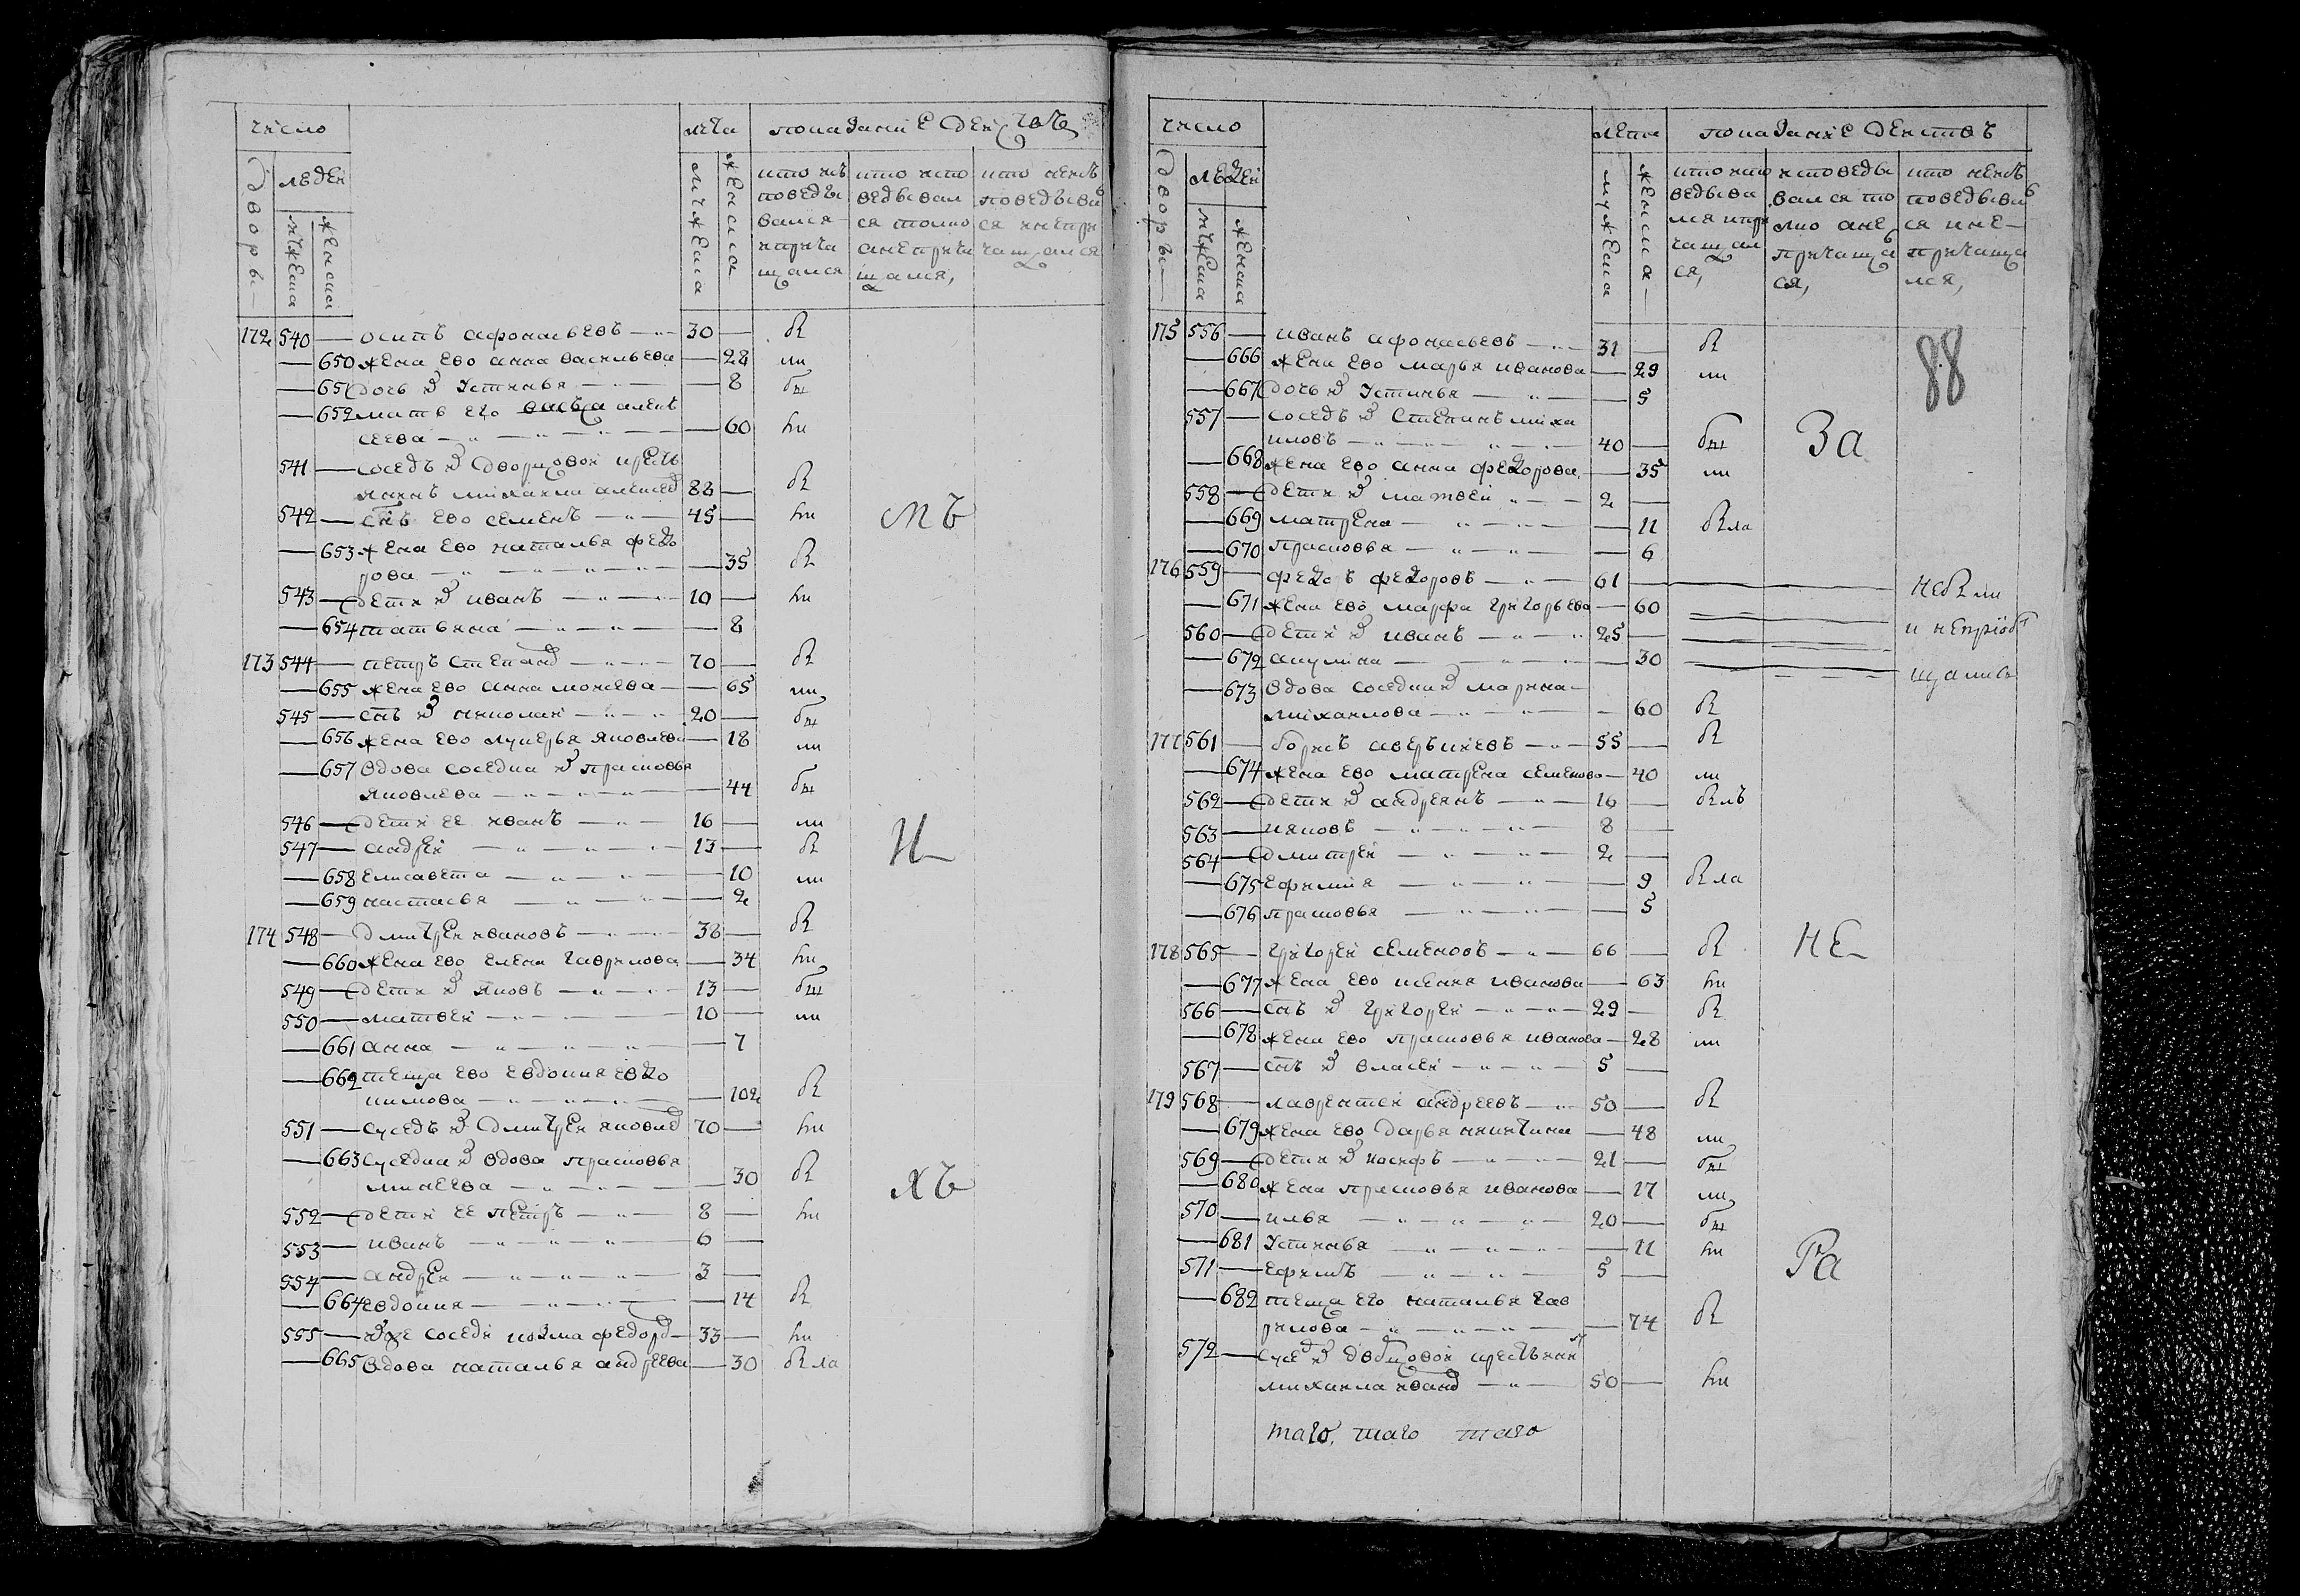 число
лѣта
показание действъ
дворы
людей
мужеска
женска
мужеска
женска
кто ис
поведы
вался
и прича
щался
кто испо
ведывал
ся токмо
а не прича
щался,
кто не ис
поведывал
ся и не при
чащался
172 540 — осипъ афонасьевъ — 30 —
— 650 жена ево анна васильева — 28
— 651 дочь Устинья — 8
— 652 мать его алек
сеева — 60
541 — соседъ дворцовой кресть
янинъ михаила алексее 88 —
542 — снъ ево семенъ — 45 —
мъ
— 653 жена ево наталья федо
рова — 35
543 — дети иванъ — 10 —
— 654 татьяна — 8
173 544 — петръ степано 70 —
— 655 жена ево анна моисева — 65
545 — снъ николаи — 20 —
— 656 жена ево лукерья яковлева — 18
— 657 вдова соседка прасковья
яковлева — 44
546 — дети ее иванъ — 16 —
547 — андреи — 13 —
— 658 елисавета — 10
— 659 настасья — 2
174 548 — дмитреи ивановъ — 38 —
— 660 жена ево елена гаврилова — 34
549 — дети яковъ — 13 —
550 — матвеи — 10 —
— 661 анна — 7
— 662 теща ево евдокия евдо
кимова — 102
551 — суседъ дмитреи яковле 70 —
— 663 суседка вдова прасковья
минеева — 30
хъ
552 — дети ее петръ — 8 —
553 — иванъ — 6 —
554 — андреи — 3 —
— 664 евдокия — 14
555 — соседи козма федоро 33 —
— 665 вдова наталья андреева — 30
число
лета
показание действъ
дворы
людей
мужеска
женска
мужеска
женска
кто испо
ведыва
лся и при
чащал
ся,
исповеды
вался то
кмо а не
причаща
ся,
кто не ис
поведывал
ся и не
причаща
лся,
88
175 556 — иванъ афонасьевъ — 31 —
— 666 жена ево марья иванова — 29
— 667 дочь Устинья — 5
557 — соседъ степанъ миха
иловъ — 40 —
За
— 668 жена ево анна федорова — 35
558 — дети матвеи — 2 —
— 669 матрена — 11
— 670 прасковья — 6
176 559 — федоъ федоровъ — 61 —
— 671 жена ево марфа григорьева — 60
560 — дети иванъ — 25 —
— 672 акулина — 30
щались
— 673 вдова соседка марина
михаилова — 60
177 561 — борисъ аверькиевъ — 55 —
— 674 жена ево матрена семенова — 40
562 — дети андреянъ — 16 —
563 — иаковъ — 8 —
564 — дмитреи — 2 —
— 675 ефимия — 9
— 676 прасковья — 5
178 565 — григореи семеновъ — 66 —
не
— 677 жена ево ксения иванова — 63
566 — снъ григореи — 29 —
— 678 жена ево прасковья иванова — 28
567 — снъ власеи — 5 —
179 568 — лаврентеи андреевъ — 50 —
— 679 жена ево дарья никитина — 48
569 — дети иосифъ — 21 —
— 680 жена прасковья иванова — 17
570 — илья — 20 —
— 681 Устинья — 11
571 — ефимъ — 5 —
— 682 теща его наталья гав
рилова — 74
572 — сусед дворцовой крестьянин
михаила ивано 50 —
таго, таго таго